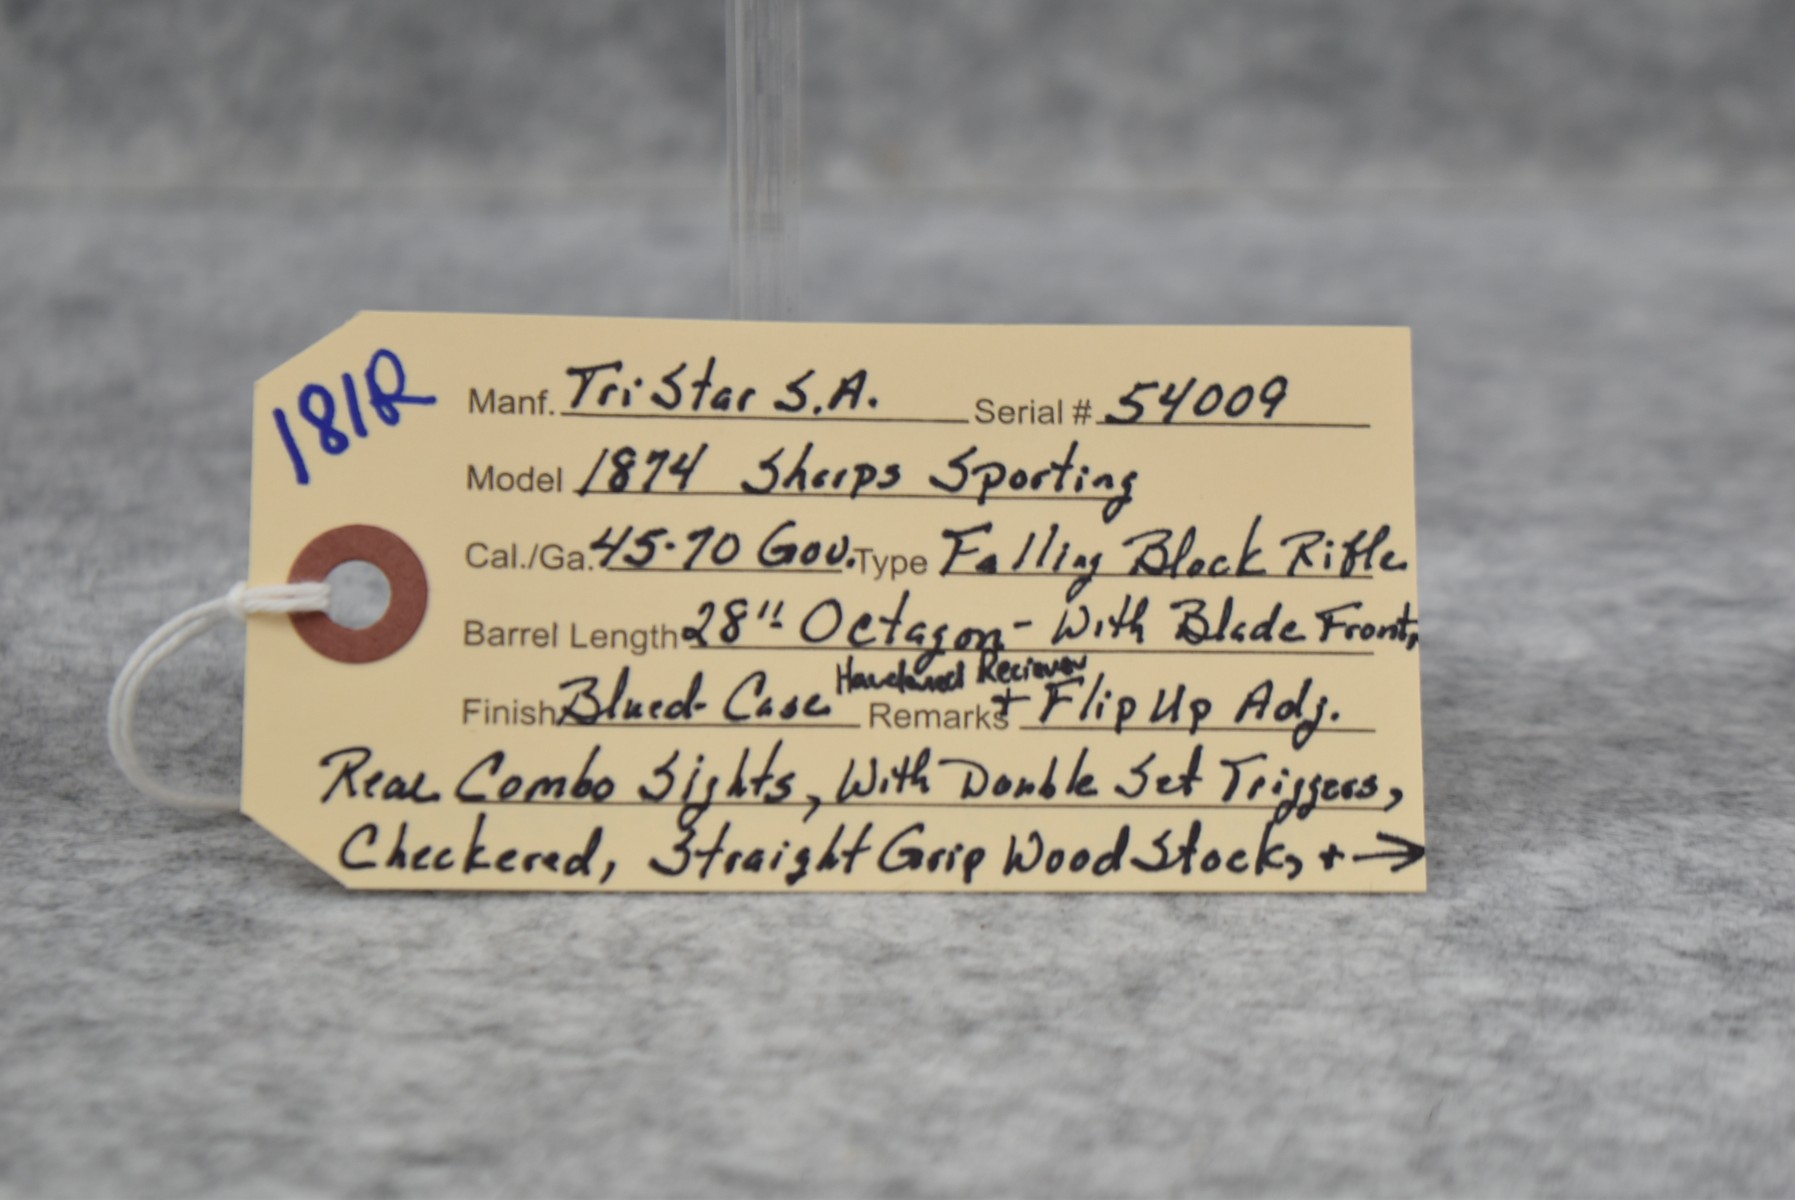 181R
Manf. TriStar S.A. Serial # 54009
Model 1874 Sharps Sporting
Cal./Ga. 45-70 Gov. Type Falling Block Rifle
Barrel Length 28" Octagon - With Blade Front,
Hardened Reciever
Finish Blued- Case Remarks + Flip Up Adj.
Rear Combo Sights, With Double Set Triggers,
Checkered, Straight Grip Wood Stock, + →